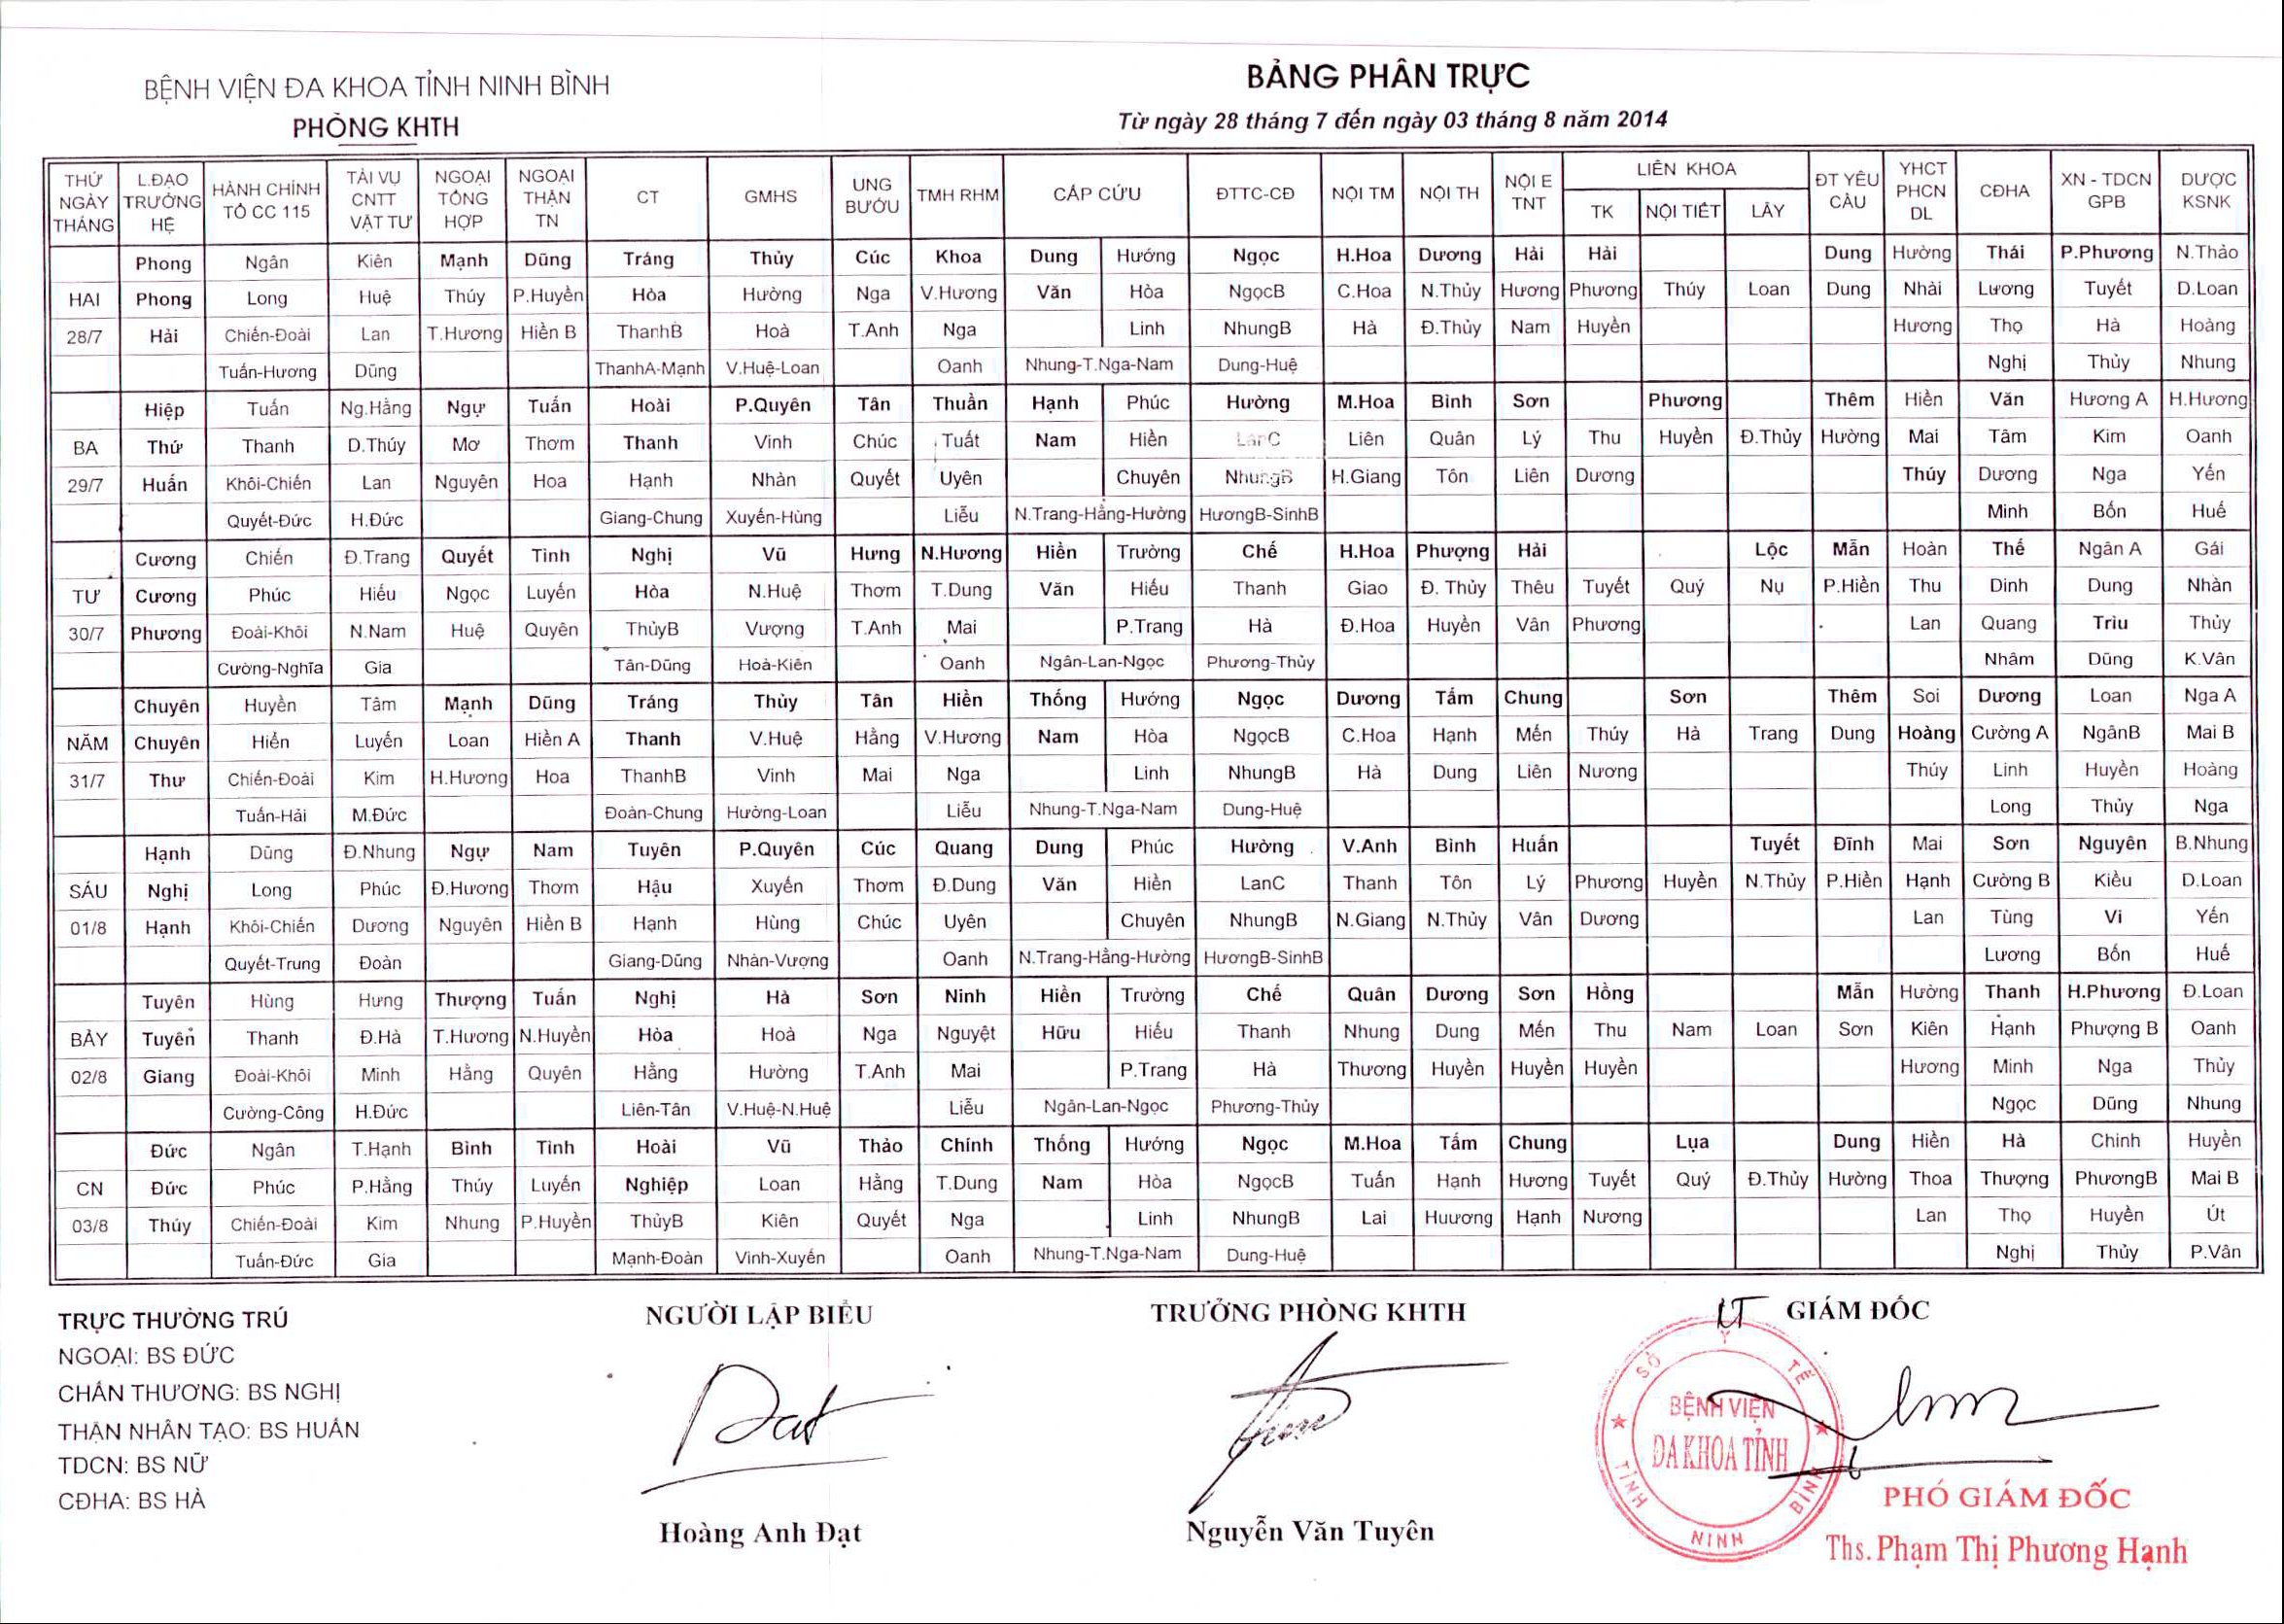 BỆNH VIỆN ĐA KHOA TỈNH NINH BÌNH
PHÒNG KHTH
BẢNG PHÂN TRỰC
Từ ngày 28 tháng 7 đến ngày 03 tháng 8 năm 2014
THỨ NGÀY THÁNG L.ĐẠO TRƯỞNG HỆ HÀNH CHÍNH TỔ CC 115 TÀI VỤ CNTT VẬT TƯ NGOẠI TỔNG HỢP NGOẠI THẬN TN CT GMHS UNG BƯỚU TMH RHM CẤP CỨU ĐTTC-CĐ NỘI TM NỘI TH NỘI E TNT LIÊN KHOA TK NỘI TIẾT LÂY ĐT YÊU CẦU YHCT PHCN DL CĐHA XN - TDCN GPB DƯỢC KSNK
Phong Ngân Kiên Mạnh Dũng Tráng Thủy Cúc Khoa Dung Hướng Ngọc H.Hoa Dương Hải Hải Dung Hường Thái P.Phương N.Thảo
HAI Phong Long Huệ Thúy P.Huyền Hòa Hường Nga V.Hương Văn Hòa NgọcB C.Hoa N.Thủy Hương Phương Thúy Loan Dung Nhài Lương Tuyết D.Loan
28/7 Hải Chiến-Đoài Lan T.Hương Hiền B ThanhB Hoà T.Anh Nga Linh NhungB Hà Đ.Thủy Nam Huyền Hương Thọ Hà Hoàng
Tuấn-Hương Dũng ThanhA-Mạnh V.Huệ-Loan Oanh Nhung-T.Nga-Nam Dung-Huệ Nghị Thủy Nhung
Hiệp Tuấn Ng.Hằng Ngự Tuấn Hoài P.Quyên Tân Thuần Hạnh Phúc Hường M.Hoa Bình Sơn Phương Thêm Hiền Văn Hương A H.Hương
BA Thứ Thanh D.Thúy Mơ Thơm Thanh Vinh Chúc Tuất Nam Hiền LanC Liên Quân Lý Thu Huyền Đ.Thủy Hường Mai Tâm Kim Oanh
29/7 Huấn Khôi-Chiến Lan Nguyên Hoa Hạnh Nhàn Quyết Uyên Chuyên NhungB H.Giang Tôn Liên Dương Thúy Dương Nga Yến
Quyết-Đức H.Đức Giang-Chung Xuyến-Hùng Liễu N.Trang-Hằng-Hường HươngB-SinhB Minh Bốn Huế
Cương Chiến Đ.Trang Quyết Tình Nghị Vũ Hưng N.Hương Hiền Trường Chế H.Hoa Phượng Hải Lộc Mẫn Hoàn Thế Ngân A Gái
TƯ Cương Phúc Hiếu Ngọc Luyến Hòa N.Huệ Thơm T.Dung Văn Hiếu Thanh Giao Đ. Thủy Thêu Tuyết Quý Nụ P.Hiền Thu Dinh Dung Nhàn
30/7 Phương Đoài-Khôi N.Nam Huệ Quyên ThủyB Vượng T.Anh Mai P.Trang Hà Đ.Hoa Huyền Vân Phương Lan Quang Trìu Thủy
Cường-Nghĩa Gia Tân-Dũng Hoà-Kiên Oanh Ngân-Lan-Ngọc Phương-Thủy Nhâm Dũng K.Vân
Chuyên Huyền Tâm Mạnh Dũng Tráng Thủy Tân Hiền Thống Hướng Ngọc Dương Tấm Chung Sơn Thêm Soi Dương Loan Nga A
NĂM Chuyên Hiển Luyến Loan Hiền A Thanh V.Huệ Hằng V.Hương Nam Hòa NgọcB C.Hoa Hạnh Mến Thúy Hà Trang Dung Hoàng Cường A NgânB Mai B
31/7 Thư Chiến-Đoài Kim H.Hương Hoa ThanhB Vinh Mai Nga Linh NhungB Hà Dung Liên Nương Thúy Linh Huyền Hoàng
Tuấn-Hải M.Đức Đoàn-Chung Hường-Loan Liễu Nhung-T.Nga-Nam Dung-Huệ Long Thủy Nga
Hạnh Dũng Đ.Nhung Ngự Nam Tuyên P.Quyên Cúc Quang Dung Phúc Hường V.Anh Bình Huấn Tuyết Đĩnh Mai Sơn Nguyên B.Nhung
SÁU Nghị Long Phúc Đ.Hương Thơm Hậu Xuyến Thơm Đ.Dung Văn Hiền LanC Thanh Tôn Lý Phương Huyền N.Thủy P.Hiền Hạnh Cường B Kiều D.Loan
01/8 Hạnh Khôi-Chiến Dương Nguyên Hiền B Hạnh Hùng Chúc Uyên Chuyên NhungB N.Giang N.Thủy Vân Dương Lan Tùng Vi Yến
Quyết-Trung Đoàn Giang-Dũng Nhàn-Vượng Oanh N.Trang-Hằng-Hường HươngB-SinhB Lương Bốn Huế
Tuyên Hùng Hưng Thượng Tuấn Nghị Hà Sơn Ninh Hiền Trường Chế Quân Dương Sơn Hồng Mẫn Hường Thanh H.Phương Đ.Loan
BẢY Tuyên Thanh Đ.Hà T.Hương N.Huyền Hòa Hoà Nga Nguyệt Hữu Hiếu Thanh Nhung Dung Mến Thu Nam Loan Sơn Kiên Hạnh Phượng B Oanh
02/8 Giang Đoài-Khôi Minh Hằng Quyên Hằng Hường T.Anh Mai P.Trang Hà Thương Huyền Huyền Huyền Hương Minh Nga Thủy
Cường-Công H.Đức Liên-Tân V.Huệ-N.Huệ Liễu Ngân-Lan-Ngọc Phương-Thủy Ngọc Dũng Nhung
Đức Ngân T.Hạnh Bình Tình Hoài Vũ Thảo Chính Thống Hướng Ngọc M.Hoa Tấm Chung Lụa Dung Hiền Hà Chinh Huyền
CN Đức Phúc P.Hằng Thúy Luyến Nghiệp Loan Hằng T.Dung Nam Hòa NgọcB Tuấn Hạnh Hương Tuyết Quý Đ.Thủy Hường Thoa Thượng PhươngB Mai B
03/8 Thúy Chiến-Đoài Kim Nhung P.Huyền ThủyB Kiên Quyết Nga Linh NhungB Lai Huương Hạnh Nương Lan Thọ Huyền Út
Tuấn-Đức Gia Mạnh-Đoàn Vinh-Xuyến Oanh Nhung-T.Nga-Nam Dung-Huệ Nghị Thủy P.Vân
TRỰC THƯỜNG TRÚ
NGOẠI: BS ĐỨC
CHẤN THƯƠNG: BS NGHỊ
THẬN NHÂN TẠO: BS HUẤN
TDCN: BS NỮ
CĐHA: BS HÀ
NGƯỜI LẬP BIỂU
Đạt
Hoàng Anh Đạt
TRƯỞNG PHÒNG KHTH
Nguyễn Văn Tuyên
KT GIÁM ĐỐC
SỞ Y TẾ
BỆNH VIỆN
ĐA KHOA TỈNH
TỈNH NINH BÌNH
PHÓ GIÁM ĐỐC
Ths. Phạm Thị Phương Hạnh